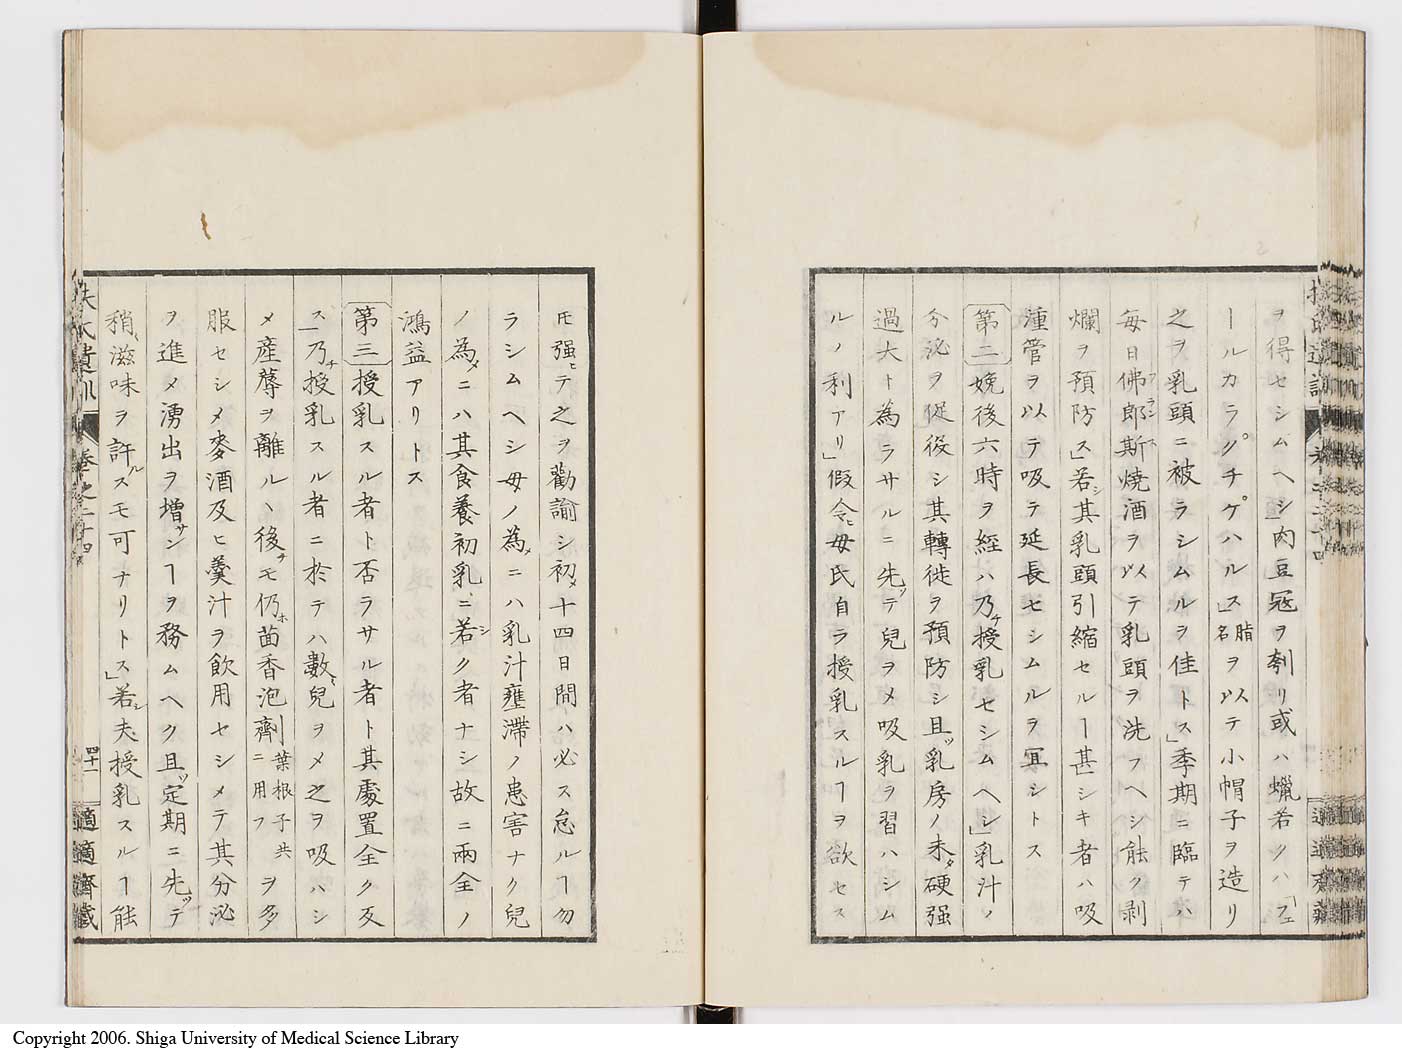 ヲ得セシムヘシ肉豆冦ヲ刳リ或ハ蝋若クハ「フェ
ールカラグチゲハル」ス脂名ヲ以テ小帽子ヲ造リ
之ヲ乳頭ニ被ラシムルヲ佳トス」季期ニ臨テハ
毎日佛郎斯フランス焼酒ヲ以テ乳頭ヲ洗フヘシ能ク剥
爛ヲ預防ス」若シ其乳頭引縮セルヿ甚シキ者ハ吸
煙管ヲ以テ吸テ延長セシムルヲ冝シトス
第二 娩後六時ヲ經ハ乃チ授乳セシムヘシ」乳汁ノ
分泌ヲ促役シ其轉徙ヲ預防シ且ツ乳房ノ未タ硬强
過大ト為ラサルニ先ツテ兒ヲメ吸乳ヲ習ハシム
ルノ利アリ」假令ヒ母氏自ラ授乳スルヿヲ欲セス
𪜈强ヒテ之ヲ勸諭シ初メ十四日間ハ必ス怠ルヿ勿
ラシムヘシ母ノ為メニハ乳汁壅滯ノ患害ナク兒
ノ為メニハ其食養初乳ニ若シク者ナシ故ニ兩全ノ
鴻益アリトス
第三 授乳スル者ト否ラサル者ト其處置全ク反
ス」乃チ授乳スル者ニ於テハ數〻兒ヲメ之ヲ吸ハシ
メ産蓐ヲ離ルヽ後チモ仍ホ茴香泡劑葉根子共ニ用フヲ多
服セシメ麥酒及ヒ羹汁ヲ飲用セシメテ其分泌
ヲ進メ湧出ヲ増サンヿヲ務ムヘク且ツ定期ニ先ツテ
稍〻滋味ヲ許ルスモ可ナリトス」若シ夫授乳スルヿ能
扶氏遺訓
巻之二十四
四十一
適適齋藏
Copyright 2006. Shiga University of Medical Science Library